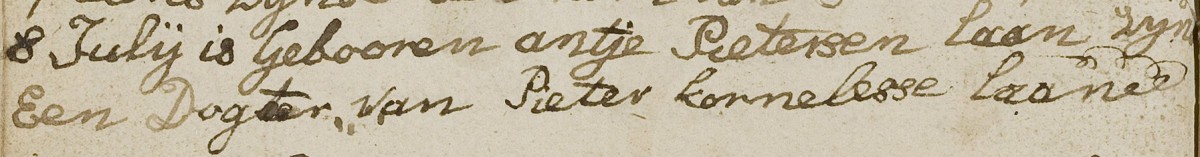 8 Julij is Gebooren antje Pietersen laan zyn
Een Dogter van Pieter kornelesse laan